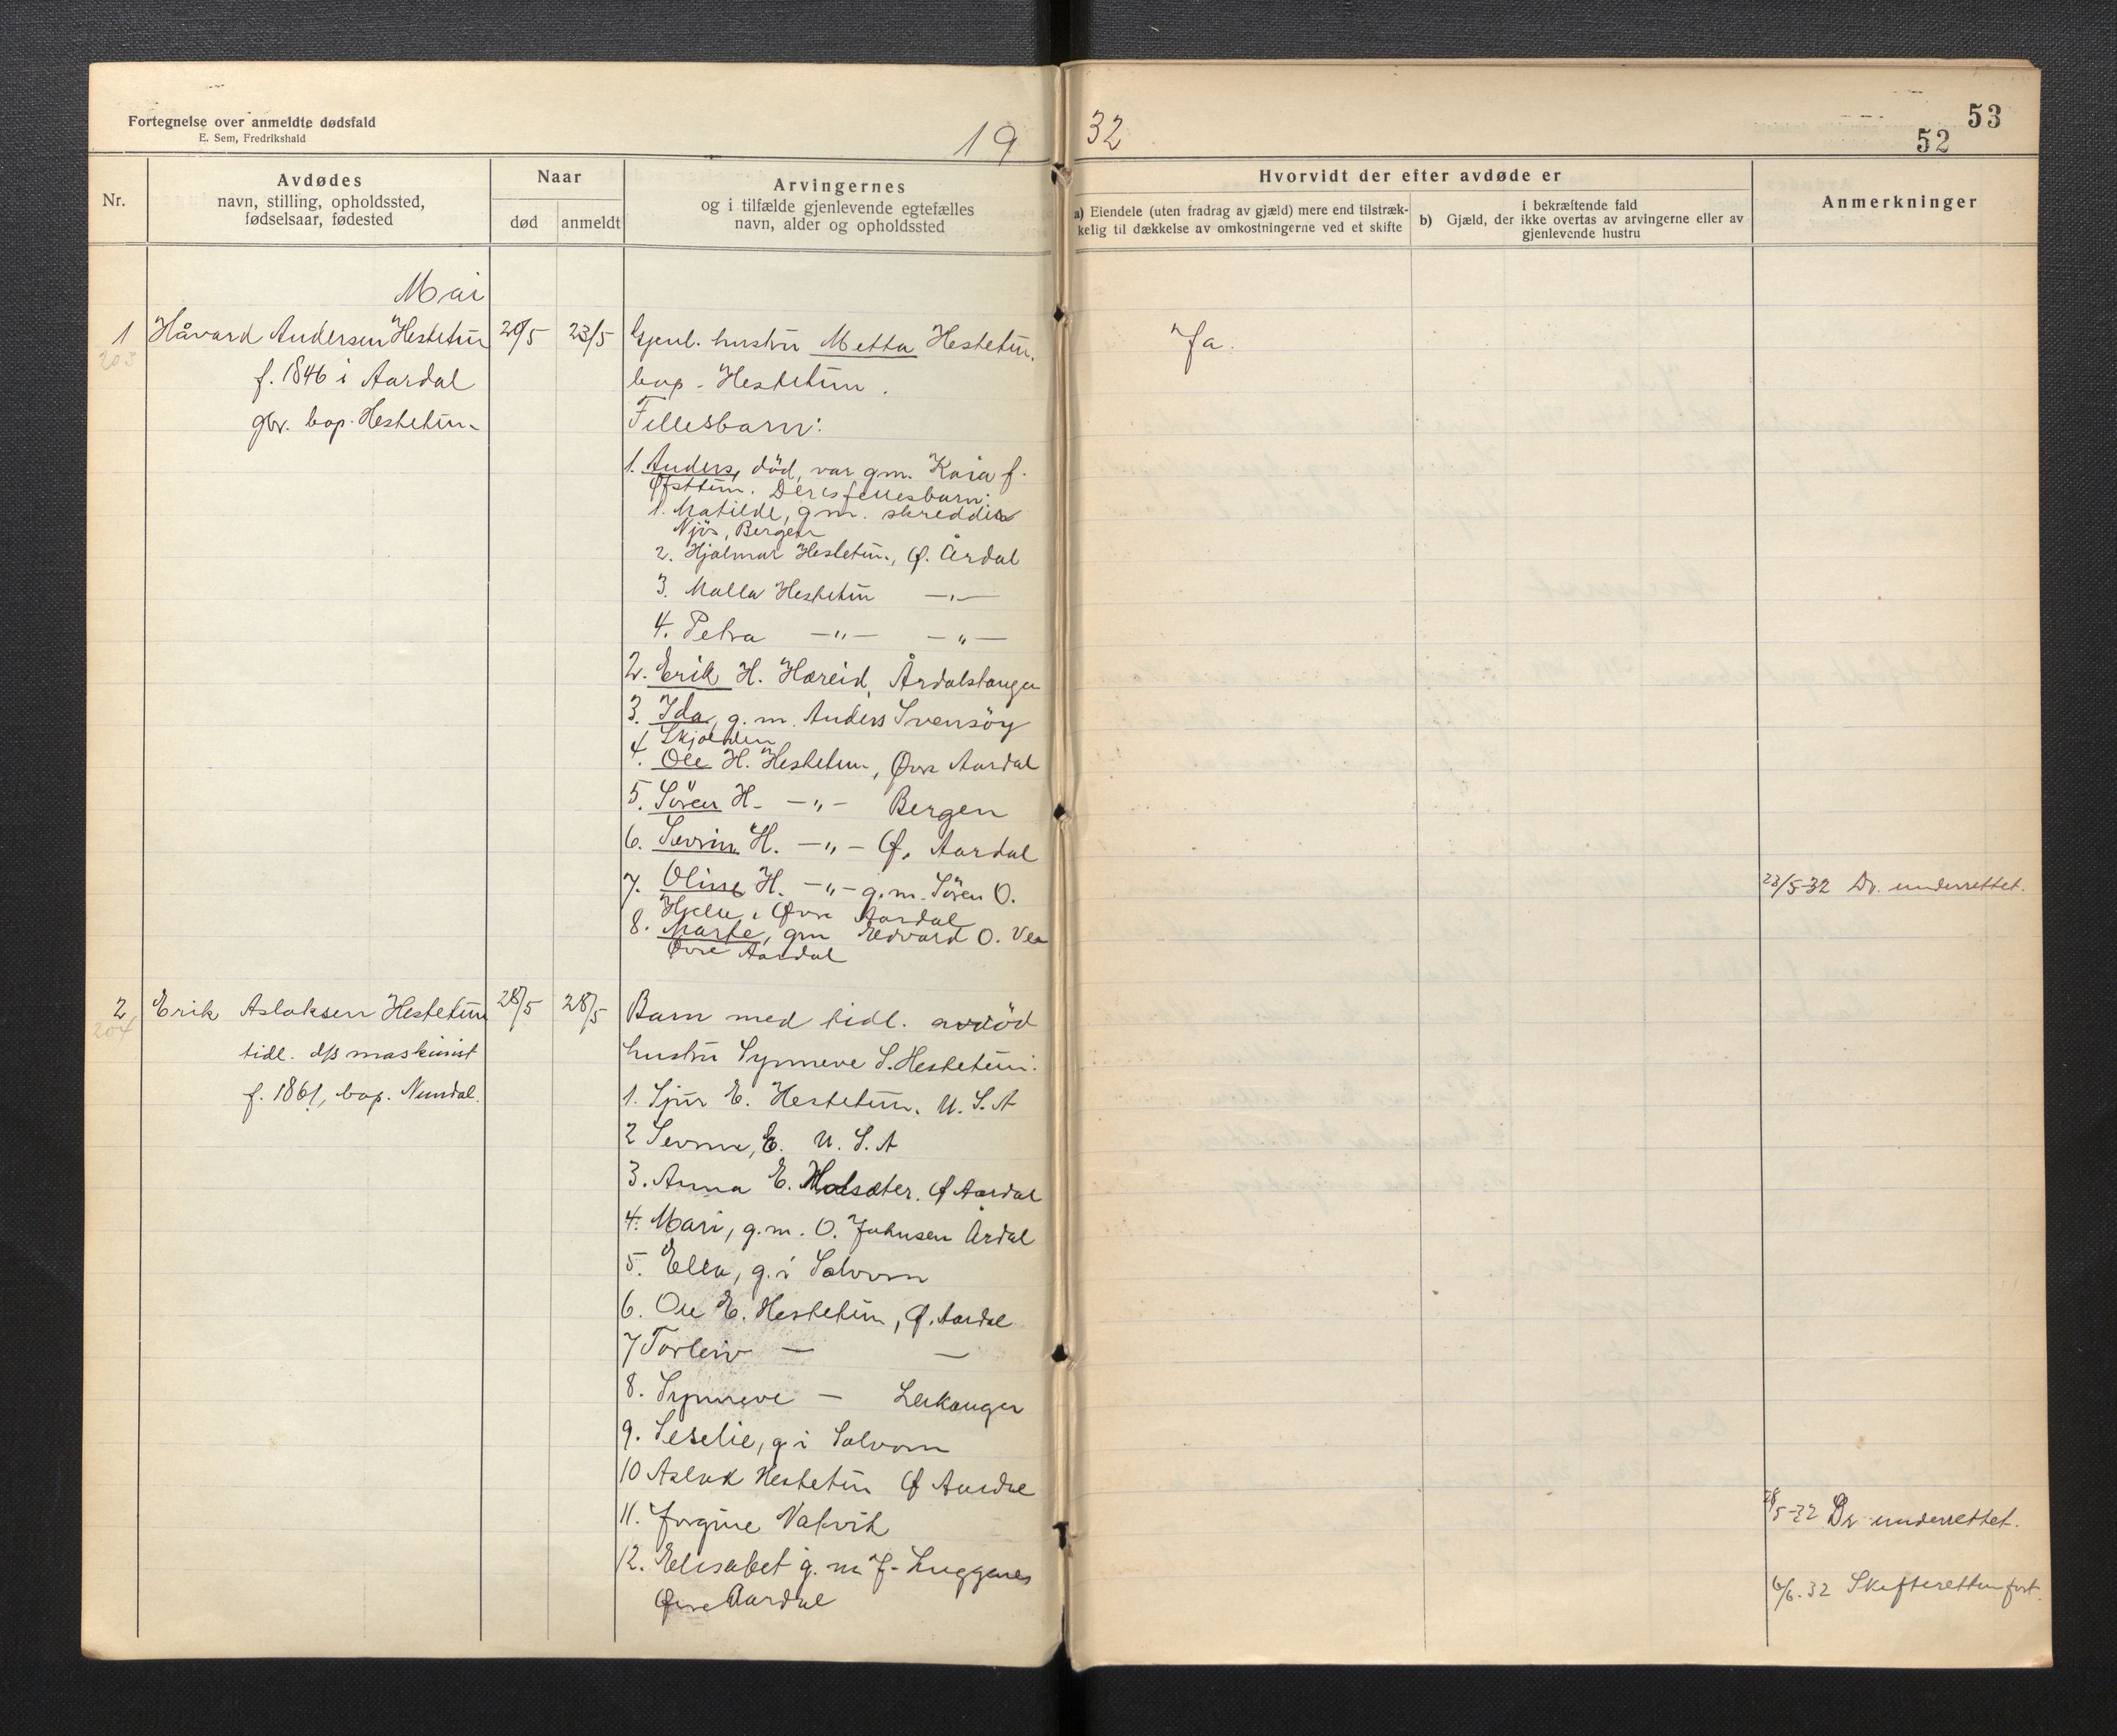 Fortegnelse over anmeldte dødsfald
E. Sem, Fredrikshald
19
32
53
52
Nr.
Avdødes
navn, stilling, opholdssted,
fødselsaar, fødested
Naar
død
anmeldt
Arvingernes
og i tilfælde gjenlevende egtefælles
navn, alder og opholdssted
Hvorvidt der efter avdøde er
a) Eiendele (uten fradrag av gjæld) mere end tilstræk-
kelig til dækkelse av omkostningerne ved et skifte
i bekræftende fald
b) Gjæld, der ikke overtas av arvingerne eller av
gjenlevende hustru
Anmerkninger
Mai
1 Håvard Andersen Hestetun 20/5 23/5 Gjenl. hustru Metta Hestetun, Ja.
203
f. 1846 i Aardal bop. Hestetun.
gbr. bop. Hestetun. Fellesbarn:
1. Anders, død, var gm. Kaia f.
Øfsttun. Deres fellesbarn:
1. Matilde, gm. skredder
Njøs, Bergen
2. Hjalmar Hestetun, Ø. Årdal
3. Malla Hestetun —„—
4. Petra —„— —„—
2. Erik H. Hæreid, Årdalstangen
3. Ida, g.m. Anders Svensøy
Skjolden
4. Ole H. Hestetun, Øvre Aardal
5. Søren H. —„— Bergen
6. Sevrin H. —„— Ø. Aardal
7. Oline H. —„— g.m. Søren O. 23/5-32 Dr. underrettet.
Hjelle i Øvre Aardal
8. Marte, gm Edvard O. Vee
Øvre Aardal
2 Erik Aslaksen Hestetun 28/5 28/5 Barn med tidl. avdød
204
tidl. d/s maskinist hustru Synneve S. Hestetun:
f. 1861, bop. Nundal. 1. Sjur E. Hestetun. U. S. A
2 Sevrina, E. U. S. A
3. Anna E. Holsæter. Ø Aardal
4. Mari, g.m. O. Johnsen Årdal
5. Ella, g. i Solvorn
6. Ole E. Hestetun, Ø. Aardal
7 Torleiv — —
8. Synneve — Leikanger
9. Seselie, g. i Solvorn
10 Aslak Hestetun Ø Aardal
11. Jorgine Vatvik 28/5-32 Dr underrettet.
12. Elisabet g. m J.
Øvre Aardal 6/6.32 Skifteretten fort.